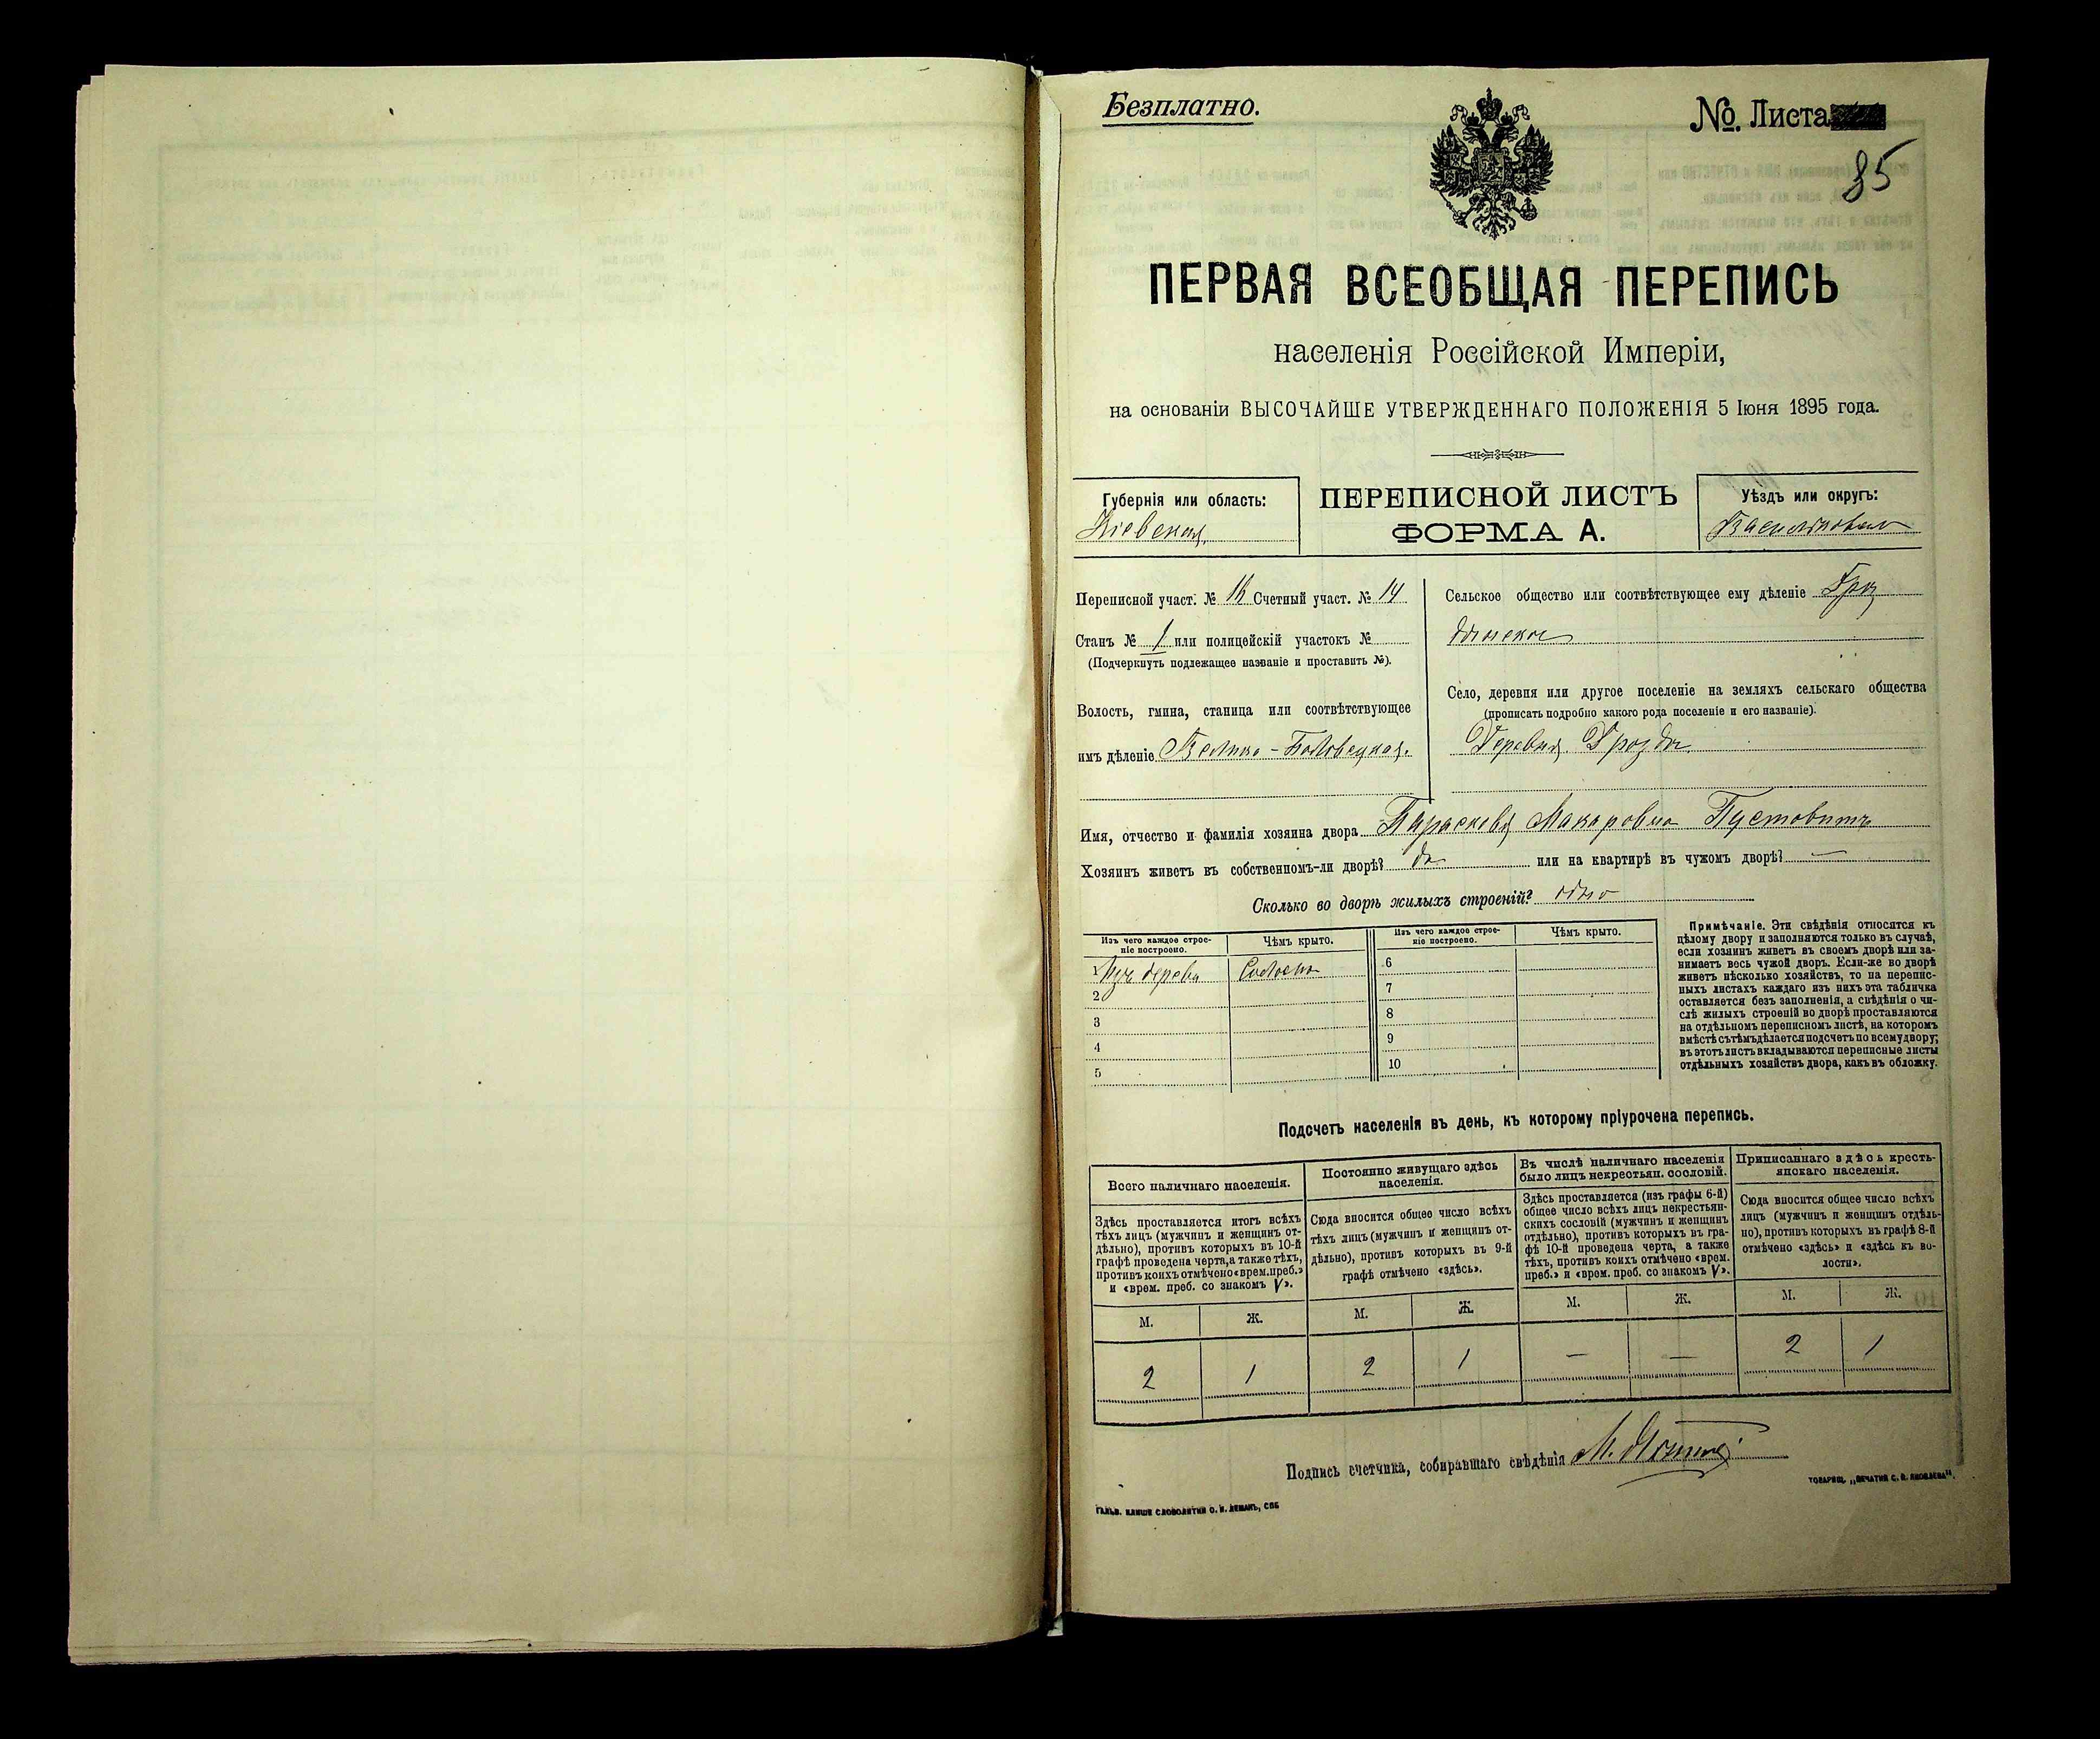 Безплатно.
№. Листа
85
ПЕРВАЯ ВСЕОБЩАЯ ПЕРЕПИСЬ
населенія Россійской Имперіи,
на основаніи ВЫСОЧАЙШЕ УТВЕРЖДЕННАГО ПОЛОЖЕНІЯ 5 Іюня 1895 года.
Губернія или область:
Кіевская.
ПЕРЕПИСНОЙ ЛИСТЪ
ФОРМА А.
Уѣздъ или округъ:
Переписной участ. № Счетный участ. № 14
Станъ № 1 или полицейскій участокъ №
(Подчеркнуть подлежащее названіе и проставить №).
Волость, гмина, станица или соотвѣтствующее
имъ дѣленіе Велико-Половецкая.
Сельское общество или соотвѣтствующее ему дѣленіе Гроз
Село, деревня или другое поселеніе на земляхъ сельскаго общества
(прописать подробно какого рода поселеніе и его названіе).
Деревня Грозды
Имя, отчество и фамилія хозяина двора Параскева Макаровна Пустовитъ
Хозяинъ живетъ въ собственномъ-ли дворѣ? да или на квартирѣ въ чужомъ дворѣ? —
Сколько во дворѣ жилыхъ строеній? одно
Изъ чего каждое строе-
ніе построено.
Чѣмъ крыто.
1 Изъ дерева Соломою
2
3
4
5
Изъ чего каждое строе-
ніе построено.
Чѣмъ крыто.
6
7
8
9
10
Примѣчаніе. Эти свѣдѣнія относятся къ
цѣлому двору и заполняются только въ случаѣ,
если хозяинъ живетъ въ своемъ дворѣ или за-
нимаетъ весь чужой дворъ. Если-же во дворѣ
живетъ нѣсколько хозяйствъ, то на перепис-
ныхъ листахъ каждаго изъ нихъ эта табличка
оставляется безъ заполненія, а свѣдѣнія о чи-
слѣ жилыхъ строеній во дворѣ проставляются
на отдѣльномъ переписномъ листѣ, на которомъ
вмѣстѣ съ тѣмъ дѣлается подсчетъ по всему двору;
въ этотъ листъ вкладываются переписные листы
отдѣльныхъ хозяйствъ двора, какъ въ обложку.
Подсчетъ населенія въ день, къ которому пріурочена перепись.
Всего наличнаго населенія.
Здѣсь проставляется итогъ всѣхъ
тѣхъ лицъ (мужчинъ и женщинъ от-
дѣльно), противъ которыхъ въ 10-й
графѣ проведена черта, а также тѣхъ,
противъ коихъ отмѣчено «врем. преб.»
и «врем. преб. со знакомъ V».
М. Ж.
2 1
Постоянно живущаго здѣсь
населенія.
Сюда вносится общее число всѣхъ
тѣхъ лицъ (мужчинъ и женщинъ от-
дѣльно), противъ которыхъ въ 9-й
графѣ отмѣчено «здѣсь».
М. Ж.
2 1
Въ числѣ наличнаго населенія
было лицъ некрестьян. сословій.
Здѣсь проставляется (изъ графы 6-й)
общее число всѣхъ лицъ некрестьян-
скихъ сословій (мужчинъ и женщинъ
отдѣльно), противъ которыхъ въ гра-
фѣ 10-й проведена черта, а также
тѣхъ, противъ коихъ отмѣчено «врем.
преб.» и «врем. преб. со знакомъ V».
М. Ж.
— —
Приписаннаго здѣсь кресть-
янскаго населенія.
Сюда вносится общее число всѣхъ
лицъ (мужчинъ и женщинъ отдѣль-
но), противъ которыхъ въ графѣ 8-й
отмѣчено «здѣсь» и «здѣсь къ во-
лости».
М. Ж.
2 1
Подпись счетчика, собиравшаго свѣдѣнія М.
ГАЛЬВ. КЛИШЕ СЛОВОЛИТНИ О. И. ЛЕМАНЪ, СПБ
ТОВАРИЩ. „ПЕЧАТНЯ С. П. ЯКОВЛЕВА".